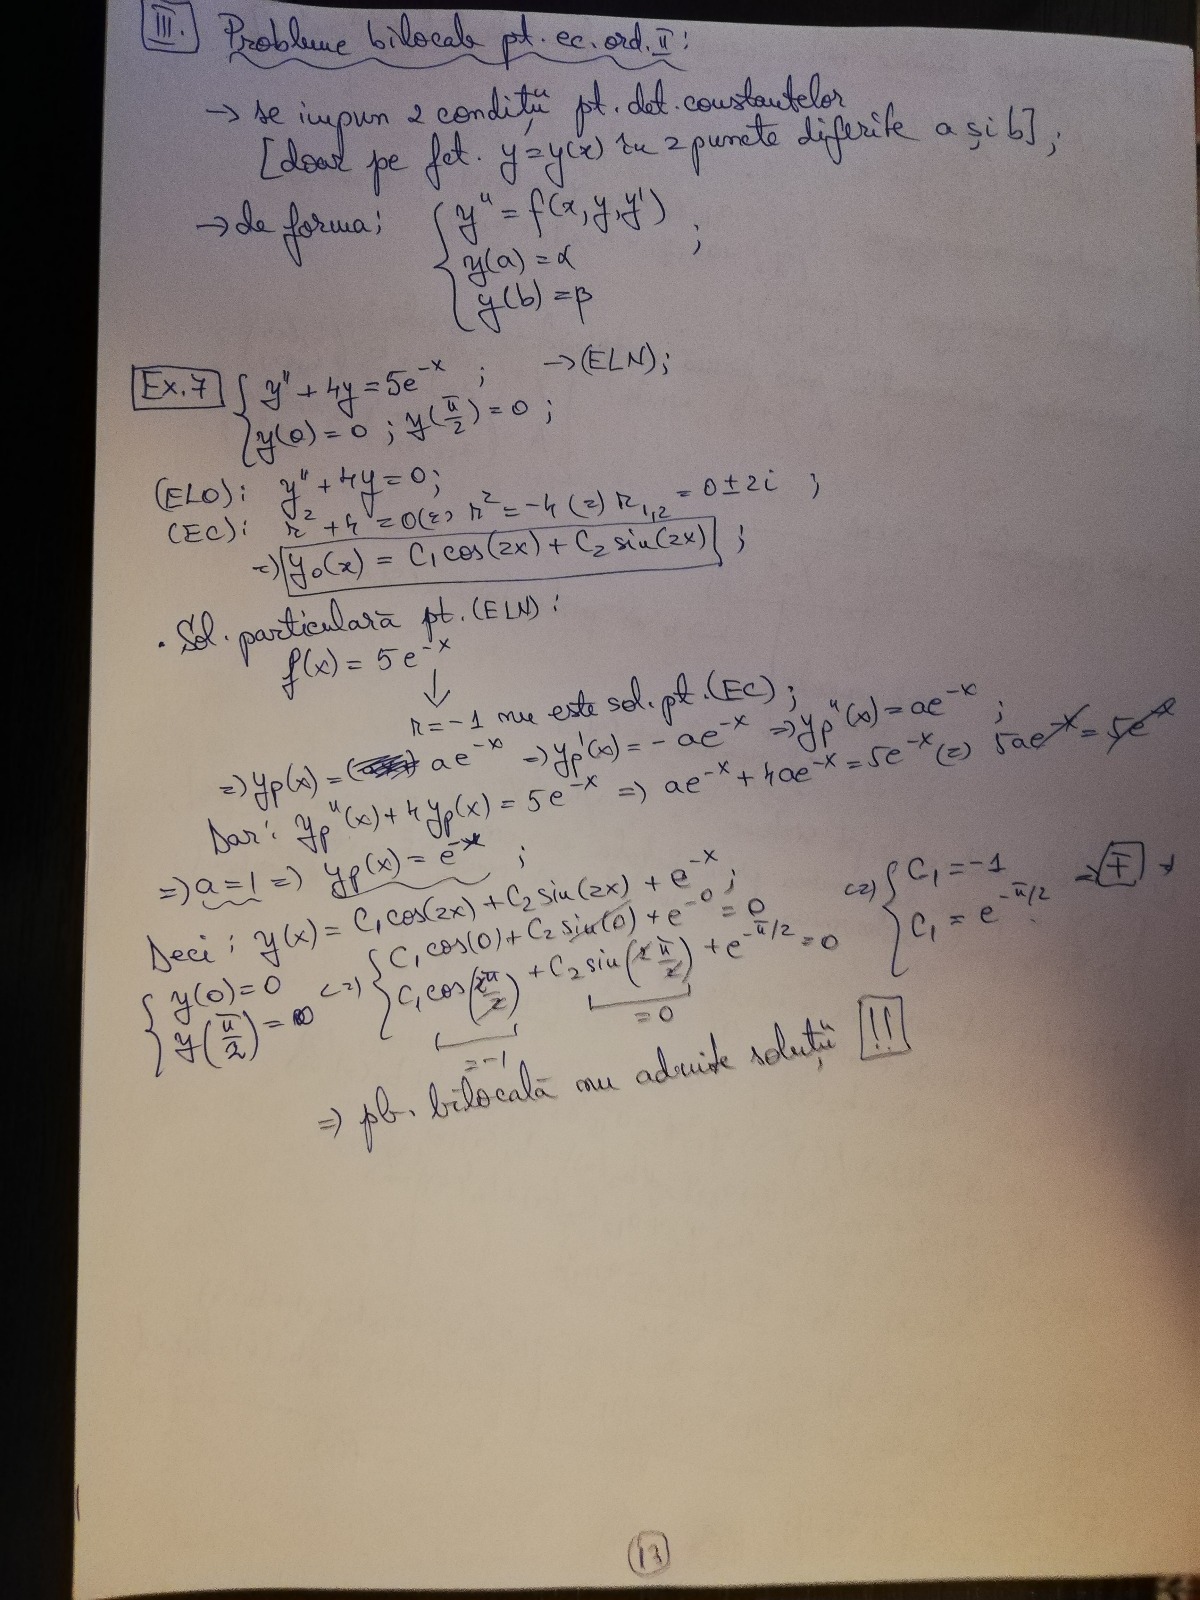 III. Probleme bilocale pt. ec. ord. II:
→ se impun 2 condiții pt. det. constantelor
[doar pe fct. y=y(x) în 2 puncte diferite a și b];
→ de forma: { y'' = f(x, y, y')
y(a) = α ;
y(b) = β
Ex. 7 { y'' + 4y = 5e^{-x} ; → (ELN);
y(0) = 0 ; y(π/2) = 0 ;
(ELO): y'' + 4y = 0;
(EC): r² + 4 = 0 (=) r² = -4 (=) r_{1,2} = 0 ± 2i ;
=) y₀(x) = C₁cos(2x) + C₂ sin(2x) ;
• Sol. particulară pt. (ELN):
f(x) = 5e^{-x}
↓
r = -1 nu este sol. pt. (EC);
=) yp(x) = ae^{-x} =) yp'(x) = -ae^{-x} =) yp''(x) = ae^{-x} ;
Dar: yp''(x) + 4yp(x) = 5e^{-x} =) ae^{-x} + 4ae^{-x} = 5e^{-x} (=) 5ae^{-x} = 5e^{-x}
=) a = 1 =) yp(x) = e^{-x} ;
Deci: y(x) = C₁cos(2x) + C₂ sin(2x) + e^{-x} ;
{ y(0) = 0 (=) { C₁cos(0) + C₂ sin(0) + e^{-0} = 0 (=) { C₁ = -1 =) F
y(π/2) = 0 C₁cos(2π/2) + C₂ sin(2π/2) + e^{-π/2} = 0 C₁ = e^{-π/2}
= -1 = 0
=) pb. bilocală nu admite soluții !!
13